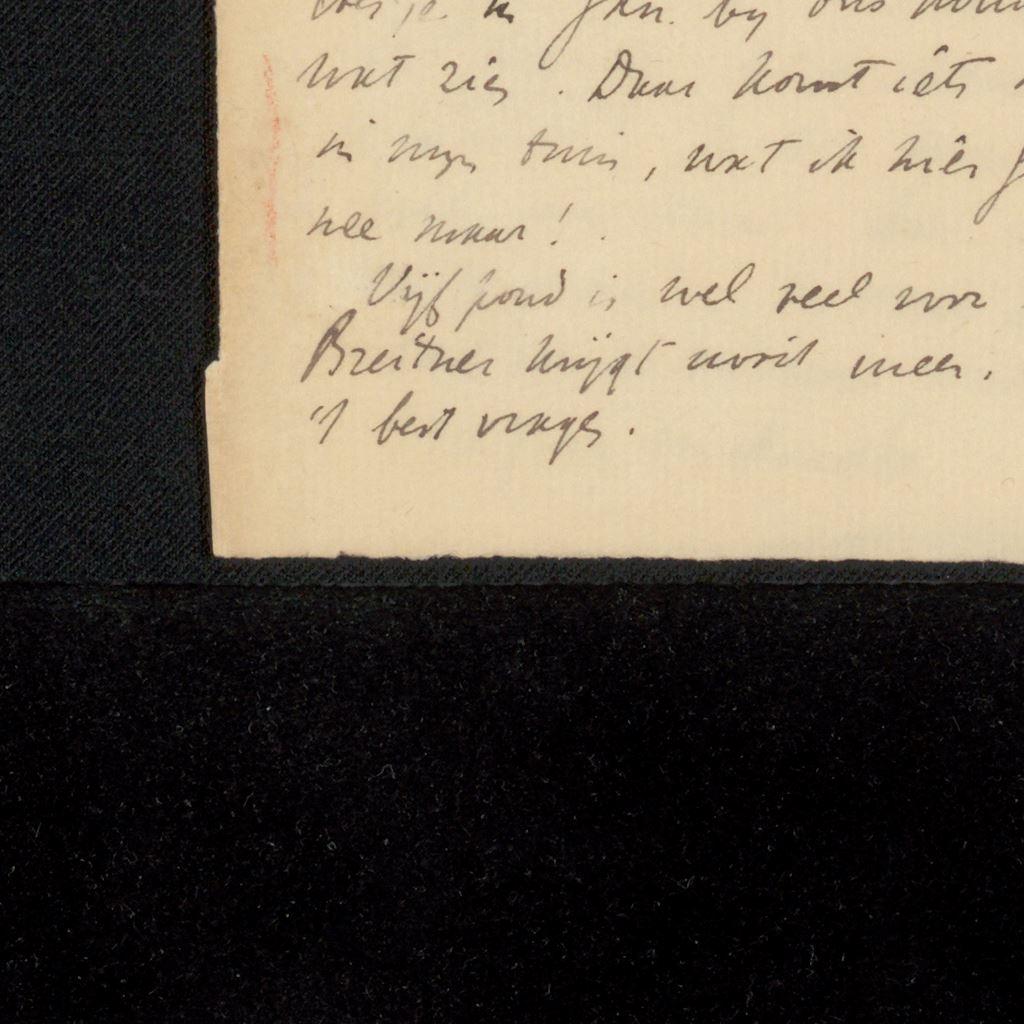 je in Jan. by ons
wat zien. Daar komt iets
in myn tuin, wat ik hier
nee maar!
Vijf pond is wel veel voor
Breitner krijgt nooit meer.
't best vragen.